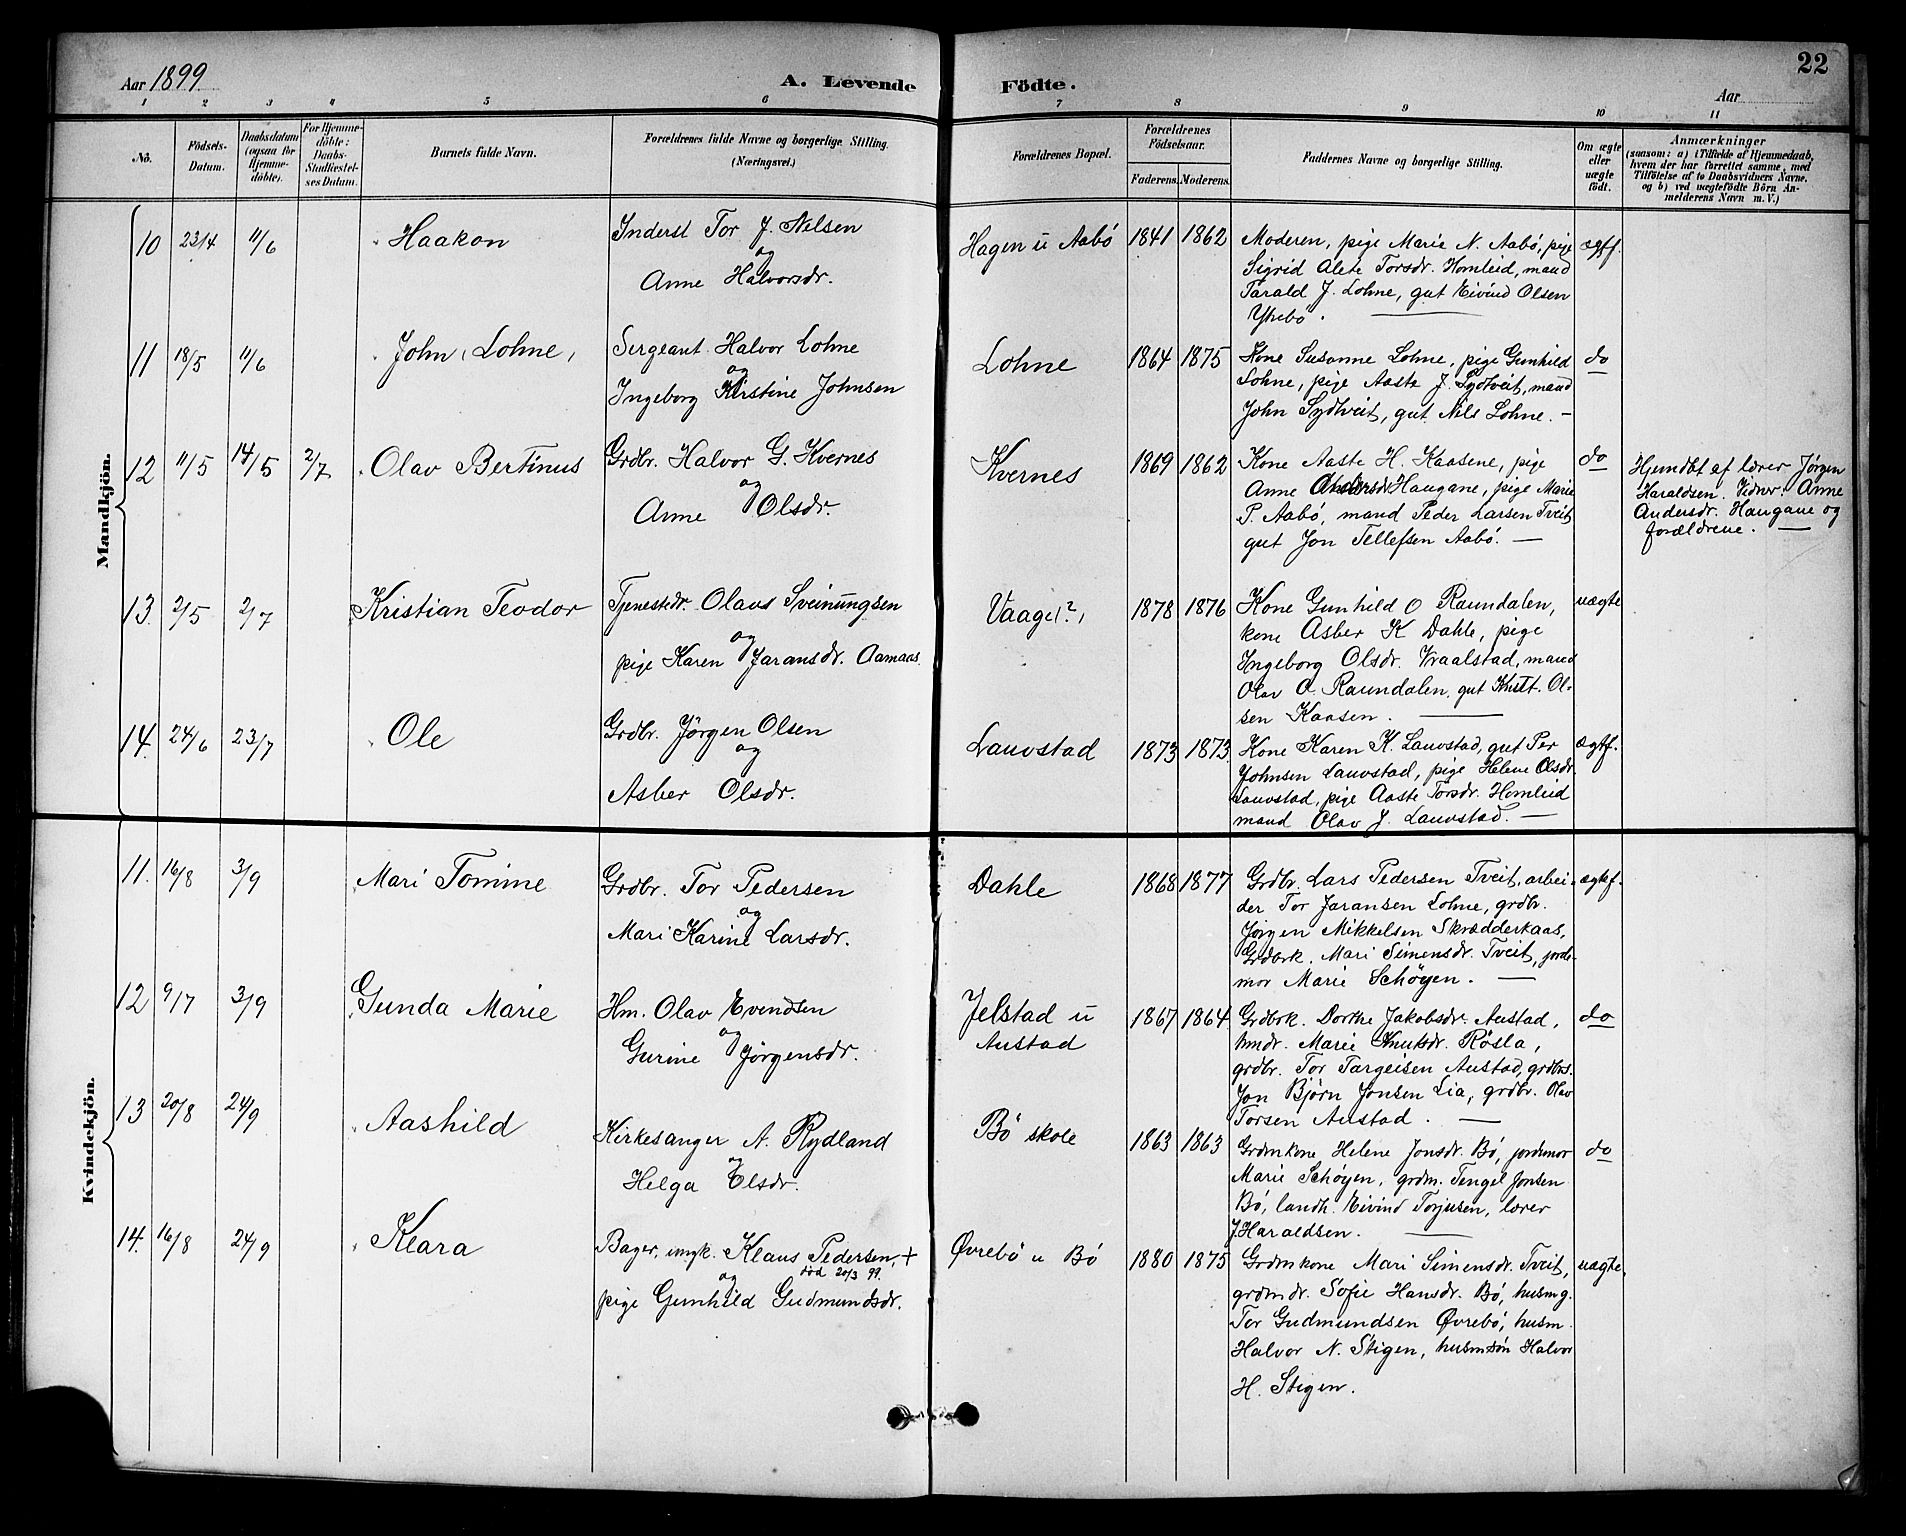 22
Aar 1899
A. Levende Födte.
Aar
1 2 3 4 5 6 7 8 9 10 11
No.
Födsels-Datum.
Daabsdatum (ogsaa for Hjemme-döbte).
For Hjemme-döbte: Daabs-Stadfæstel-ses Datum.
Barnets fulde Navn.
Forældrenes fulde Navne og borgerlige Stilling. (Næringsvei.)
Forældrenes Bopæl.
Forældrenes Födselsaar.
Faderens. Moderens.
Faddernes Navne og borgerlige Stilling.
Om ægte eller uægte födt.
Anmærkninger
(saasom: a) i Tilfælde af Hjemmedaab,
hvem der har forrettet samme, med
Tilföielse af to Daabsvidners Navne,
og b) ved uægtefödte Börn An-
melderens Navn m. V.)
Mandkjön.
10 23/4 11/6 Haakon
Inderst Tor J. Nilsen
og
Anne Halvorsdr.
Hagen u Aabö 1841 1862
Moderen, pige Marie N. Aabö, pige
Sigrid Alete Torsdr. Homleid, mand
Tarald J. Lohne, gut Eivind Olsen
Ytrebö.
ægtf.
11 18/5 11/6 John (Lohne)
Sergeant Halvor Lohne
og
Ingeborg Kirstine Johnsen
Lohne 1864 1875
Kone Susanne Lohne, pige Gunhild
Lohne, pige Aaste J. Sydtveit, mand
John Sydtveit, gut Nils Lohne. —
do
12 11/5 14/5 2/7 Olav Bertinus
Grdbr. Halvor G. Kvernes
og
Anne Olsdr.
Kvernes 1869 1862
Kone Aaste H. Kaasene, pige
Anne Andersdr Haugane, pige Marie
P. Aabö, mand Peder Larsen Tveit
gut Jon Tellefsen Aabö. —
do
Hjemdbt af lærer Jørgen
Haraldsen. Vidner: Anne
Andersdr. Haugane og
forældrene. —
13. 2/5 2/7 Kristian Teodor
Tjenestedr. Olaus Sveinungsen
og
pige Karen Jaransdr. Aamaas.
Vaage(?) 1878 1876
Kone Gunhild O Raundalen,
kone Asber K Dahle, pige
Ingeborg Olsdr. Vraalstad, mand
Olav O. Raundalen, gut Knut Ol-
sen Kaasen.
uægte
14. 24/6 23/7 Ole
Grdbr. Jørgen Olsen
og
Asber Olsdr.
Lauvstad 1873 1873.
Kone Karen K. Lauvstad, gut Per
Johnsen Lauvstad, pige Helene Olsdr.
Lauvstad, pige Aaste Torsdr. Homleid
mand Olav J. Lauvstad. —
ægtf.
Kvindekjön.
11. 16/8 3/9 Mari Tomine
Grdbr. Tor Pedersen
og
Mari Karine Larsdr.
Dahle 1868 1877
Grdbr. Lars Pedersen Tveit, arbei-
der Tor Jaransen Lohne, grdbr.
Jörgen Mikkelsen Skrædderkaas,
Grdbrk. Mari Simensdr. Tveit, jorde-
mor Marie Schöyen. —
ægtef.
12 9/7 3/9 Gunda Marie
Hm. Olav Evendsen
og
Gurine Jörgensdr.
Jelstad u
Austad
1867 1864
Grdbrk. Dorthe Jakobsdr. Austad,
hmdr. Marie Knutsdr. Røsla,
grdbr. Tor Targeisen Austad, grdbrs.
Jon Bjørn Jonsen Lia, grdbr. Olav
Torsen Austad. —
do
13 20/8 24/9 Aashild
Kirkesanger A. Rydland
og
Helga Elsdr.
Bö skole 1863 1863
Grdmkone Helene Jonsdr. Bö, jordemor
Marie Schöyen, grdm. Tengel Jonsen
Bö, landh. Eivind Torjusen, lærer
J. Haraldsen.
do
14. 16/8 24/9 Klara
Bager, ungk. Klaus Pedersen, +
död 20/3 99.
og
pige Gunhild Gudmundsdr.
Øvrebö u Bö 1880 1875
Grdmkone Mari Simensdr. Tveit,
grdmdr. Sofie Hansdr. Bö, husmg.
Tor Gudmundsen Øvrebö, husm.
Halvor N. Stigen, husmsön Halvor
H. Stigen.
uægte.